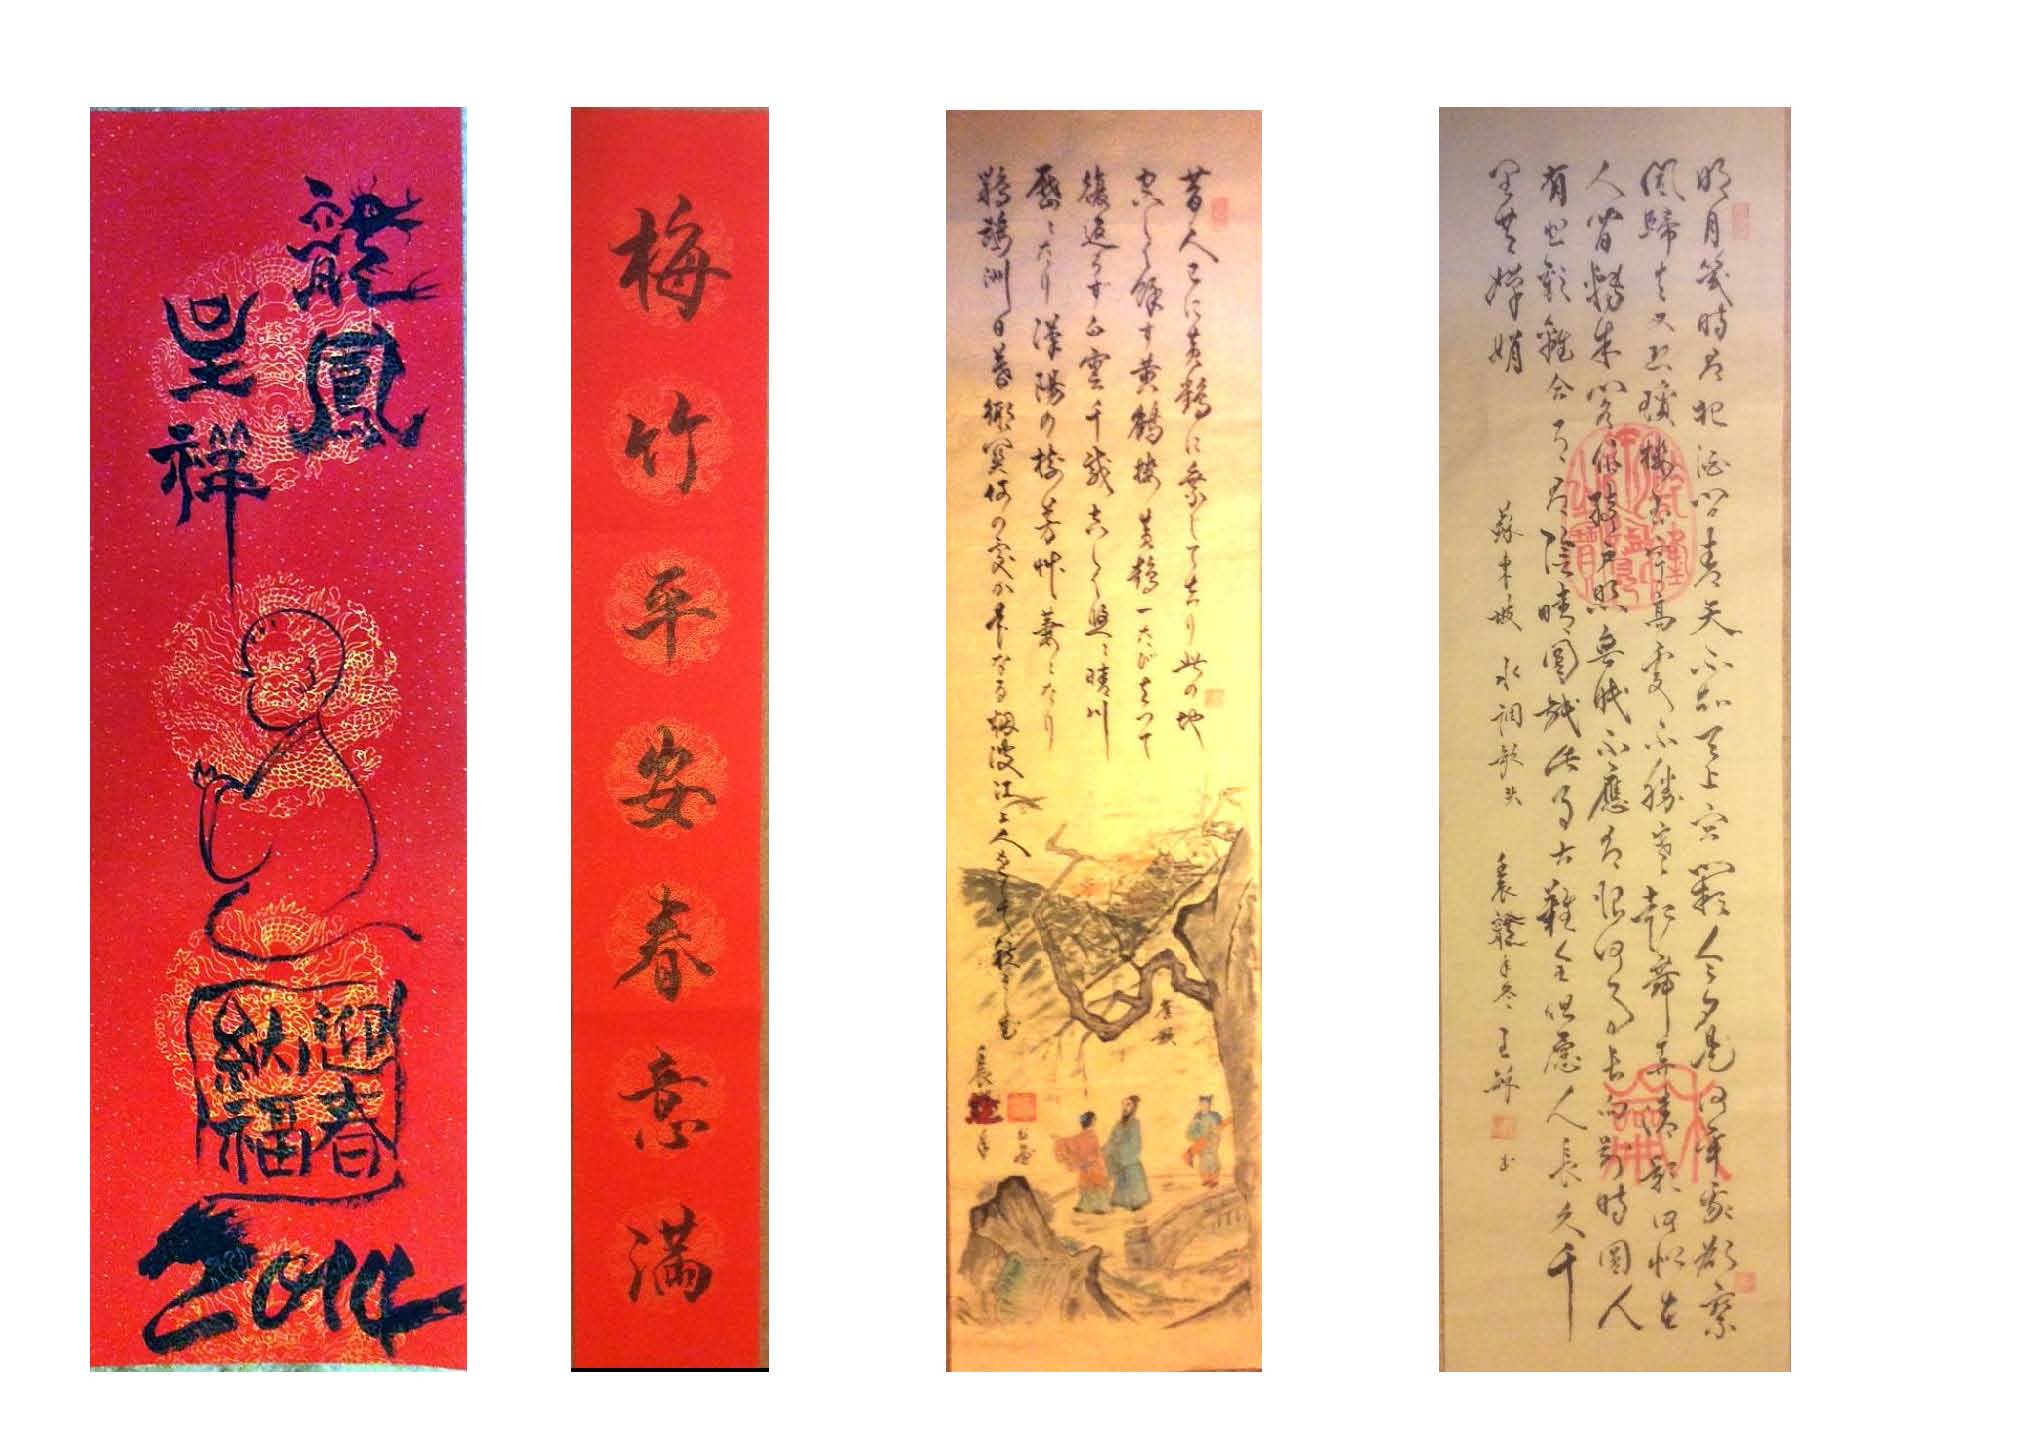 龍鳳
呈祥
迎春
納福
2014
梅竹平安春意满
昔人已に黄鶴に乗して去り此の地
空しく餘す黄鶴楼黄鶴一たび去って
復返らず白雲千載空しく悠々晴川
歴々たり漢陽の樹芳草萋々たり
鸚鵡洲日暮郷関何の処か是なる烟波江上人をして愁へしむ
崔顥
明月幾時有把酒問青天不知天上宮闕今夕是何年我欲乘
風歸去又恐瓊樓玉宇高處不勝寒起舞弄清影何似在
人間轉朱閣低綺戶照無眠不應有恨何事長向別時圓人
有悲歡離合月有陰晴圓缺此事古難全但愿人長久千
里共嬋娟
蘇東坡 水調歌头 壬辰龍年冬 王